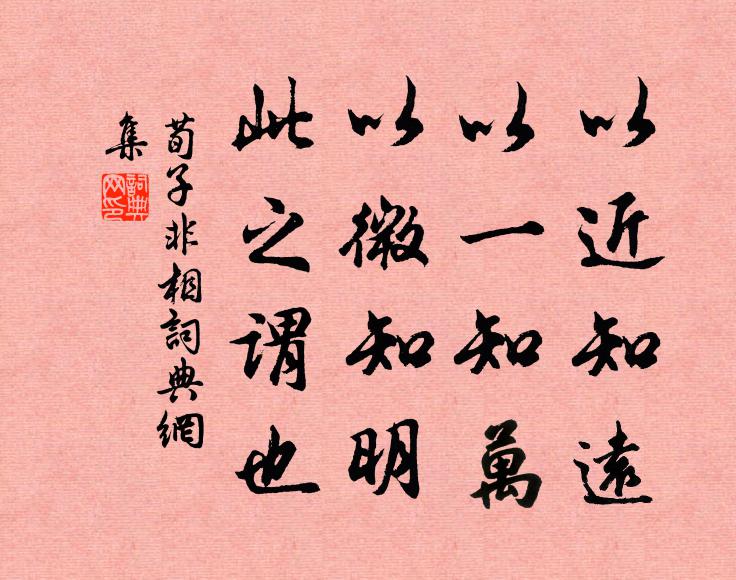 以近知遠
以一知萬
以微知明
此之謂也
荀子非相詞典網
集
詞典网印